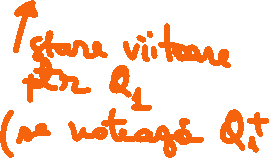 stare viitoare
ptr Q₁
(se notează Q₁⁺